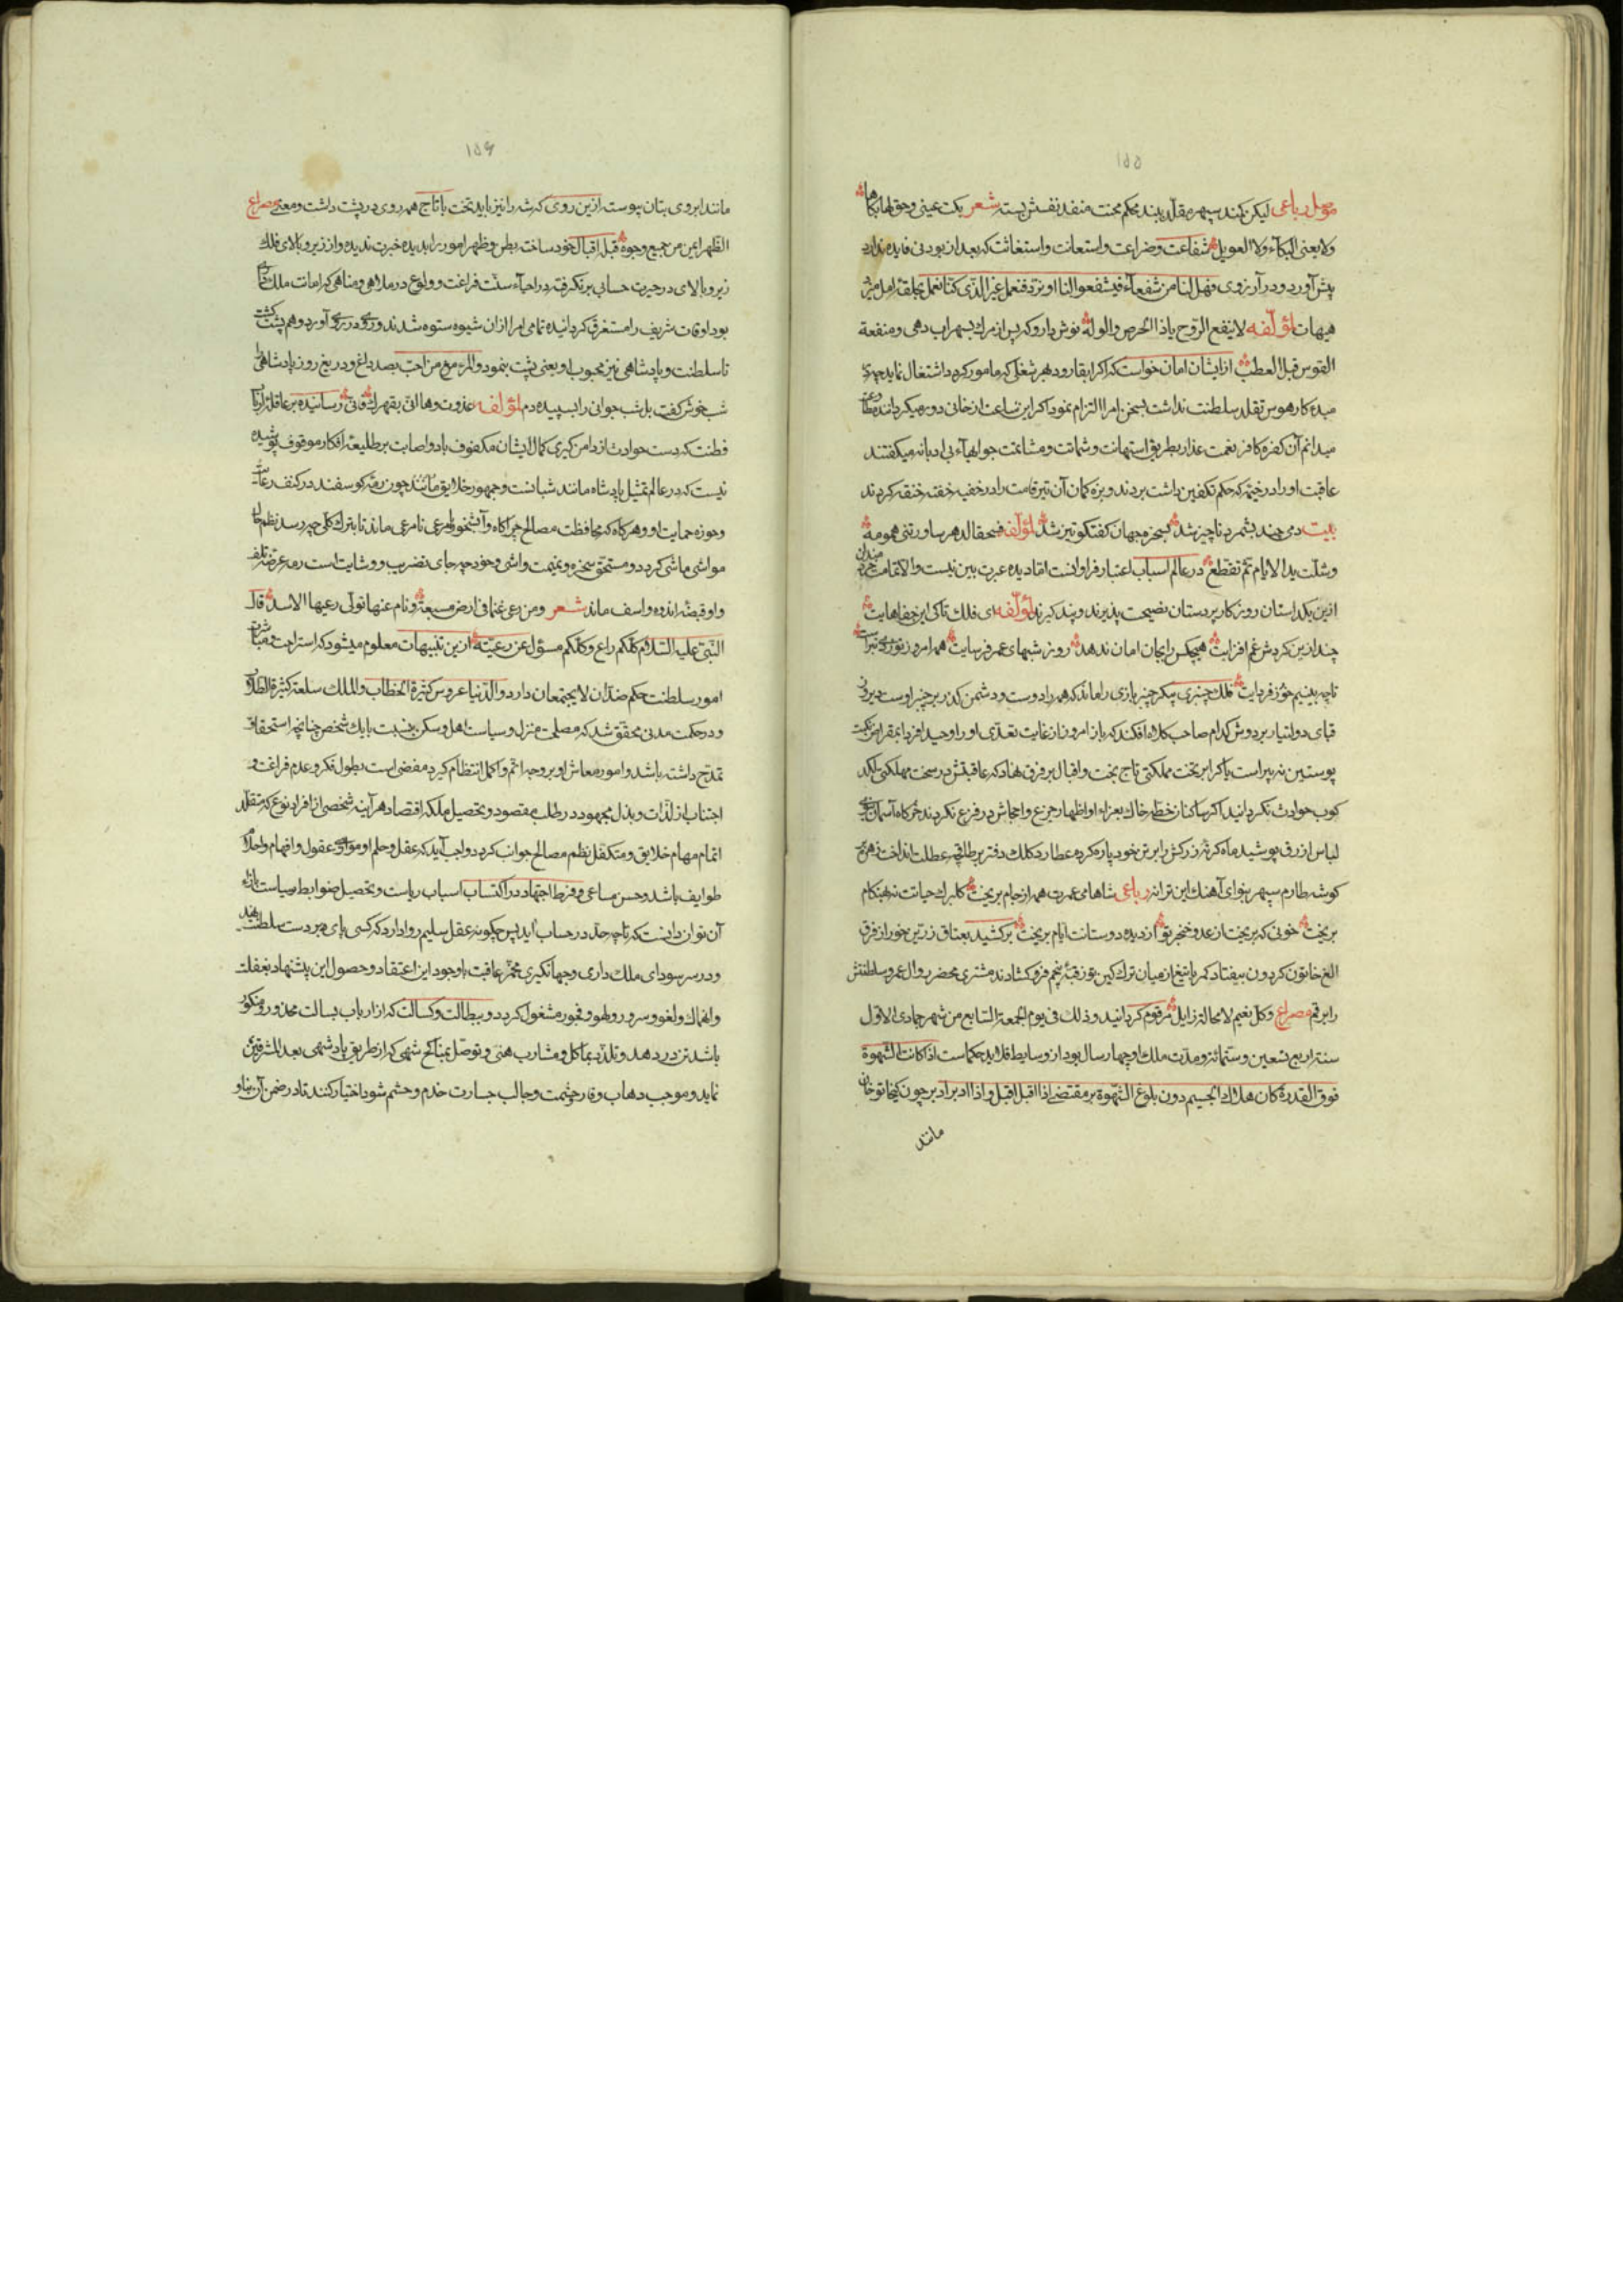 ۱۵۵
رباعی لیکن کند سپهر مقلد بند محکم محنت منفد نفسش بسته شعر بکت عینی وحق لها بکاها
ولا یغنی البکآء ولا العویل شفاعت وضراعت واستعانت واستغاثت که بعد از بودنی فایده ندارد
پیش آورد و در آرزوی فهل لنا من شفعآء فیشفعوا لنا او نرد فنعمل غیر الذی کنا نعمل
هیهات لمؤلفه لا ینفع الزوح یاذا الحرص والوله نوش دارو که پس از مرک بسهراب دهی ومنفعة
القوس قبل العطب از ایشان امان خواست که اکر ابقا رود بهر شغلی که مامور کردد اشتغال نماید
میده کار هوس تقلد سلطنت نداشت بسخن امرا التزام نمود اکر این ساعت از خانی دورم میکردانند
میدانم آن کفره کافر نعمت غدار بطریق استهانت وشماتت ومشاتمت جوابهاء بی ادبانه میکفتند
عاقبت او را در خیمه که حکم تکفین داشت بردند وبزه کمان آن تیر قامت را در خفیه خفته خنقه کردند
بیت دمی چند بشمرد ناچیز شد بسخره جهان کفت کو تیز شد لمؤلفه فسحقا لدهر ساورتنی همومه
وشلت ید الایام ثم تقطع در عالم اسباب اعتبار فراوانست اما دیده عبرت بین نیست والا تمامت خردمندان
ازین یک داستان روزکار پردستان نصیحت پذیرند وپند کیرند لمؤلفه ای فلک تا کی این جفاهایت
چند ازین کردش غم افزایت هیچکس را بجان امان ندهد روز شبهای عمر فرسایت همه امروز
تا چه بینیم خوز فردایت فلک چنبری پیکر چنبر بازی را ماند که همه را دوست ودشمن کذر بر چنبر اوست
قبای دولتیار بر دوش کدام صاحب کلاه افکند که باز امروز از غایت تعدی او را وحید افرید بمقراض نکبت
پوستین نه پیراست یا کرا بر تخت مملکتی تاج بخت واقبال بر فرق نهاد که عاقبتش در سخت مهلکتی لکد
کوب حوادث نکردانید اکر ساکنان خطه خاک بعزاء او اظهار جزع واجهاش در فزع نکردند خرکاه آسمان
لباس ازرق پوشید ماه کرته زرکش را بر تن خود پاره کرد عطارد کلک دفتر بر طاقچه عطلت انداخت زهره
کوشه طارم سپهر بنوای آهنک این ترانه رباعی شاها می عمرت همه از جام بریخت کلبرک حیاتت نه بهنکام
بریخت خونی که بریخت از عدو خنجر تو از دیده دوستانت ایام بریخت برکشید بعتاق زرین خور از فرق
الغ خاتون کردون بیفتاد کمر با تیغ از میان ترک کین توز قبه پنجم فرو کشادند مشتری محضر زوال عمر وسلطنتش
را برقم مصراع وکل نعیم لا محالة زایل مرقوم کردانید وذلک فی یوم الجمعة السابع من شهر جمادی الاول
سنة اربع تسعین وستمائة ومدت ملک او چهار سال بود از وسایط قلاید حکماست اذا کانت الشهوة
فوق القدرة کان هلاک الجسیم دون بلوغ الشهوة بر مقتضی اذا اقبل اقبل واذا ادبر ادبر چون کیخاتو خان
مانند
۱۵۶
مانند ابروی بتان پیوست ازین روی که شه را نیز باید تخت با تاج همه روی در پشت داشت ومعنی مصراع
الظهر این من جمیع وجوه قبل اقبال خود ساخت بطن وظهر امور را بدیده خبرت ندیده واز زیر وبالای فلک
زیر وبالای در حیرت حسابی برنکرفته در احیآء سنت فراغت وولوع در ملاهی ومناهی که امات ملک
بود اوقات شریف را مستغرق کردانیده تمامی امرا از ان شیوه ستوه شدند وروی در روی آورد وهم پشت کشت
تا سلطنت وپادشاهی نیز محبوب او یعنی پشت بنمود والمرء مع من احب بصد داغ ودریغ روز پادشاهی
شب خوش کفت بل شب جوانی را بسپیده دم لمؤلفه رسانیده بر عاقل
فطنت که دست حوادث از دامن کیری کمال ایشان مکفوف باد واصابت بر طلیعه افکار موقوف پوشیده
نیست که در عالم تمثیل پادشاه مانند شبانست وجمهور خلایق مانند چون رمه کوسفند در کنف رعایت
وحوزه حمایت او وهرکاه که محافظت مصالح چراکاه وآبشخور مرعی نامرعی ماند تا بترک کلی چه رسد نظم حال
مواشی متلاشی کردد ومستحق سخره ونمیمت واشی وخود چه جای تضریب ووشایت است رمه عرضه تلف
واو قبضه اندوه واسف ماند شعر ومن رعی غنما فی ارض مسبعة ونام عنها تولی رعیها الاسد قال
النبی علیه السلام کلکم راع وکلکم مسؤل عن رعیته ازین تنبیهات معلوم میشود که استراحت
امور سلطنت حکم ضدان لا یجتمعان دارد والدنیا عروس کثیرة الخطاب والملک سلعة کثیرة الطلاب
ودر حکمت مدنی محقق شد که مصلحت منزل وسیاست اهل وسکن بنسبت با یک شخص چنانچه استحقاق
تمدح داشته باشد وامور معاش او بر وجه اتم واکمل انتظام کیرد مفضی است بطول فکر وعدم فراغت و
اجتناب از لذات وبذل مجهود در طلب مقصود وتحصیل ملکه اقتصاد هر آینه شخصی از افراد نوع که متقلد
اتمام مهام خلایق ومتکفل نظم مصالح جوانب کردد واجب آید که عقل وحلم او موازی عقول وافهام واحلام
طوایف باشد وحسن مساعی وفرط اجتهاد در اکتساب اسباب ریاست وتحصیل ضوابط سیاست بازاء
آن توان دانست که تا چه حد در حساب آید پس چکونه عقل سلیم روا دارد که کسی پای بر دست سلطنت نهد
ودر سر سودای ملک داری وجهانکیری مخمر عاقبت با وجود این اعتقاد وحصول این پیشنهاد بغفلت
وانهماک ولغو وسرور ولهو وفجور مشغول کردد وببطالت وکسالت که از ارباب بسالت محذور ومنکور
باشد تن در دهد وتلذذ بماکل ومشارب هنی وتوصل بمناکح شهی که از طریق پادشهی بعد المشرقین
نماید وموجب ذهاب وقار حشمت وجالب جسارت خدم وحشم شود اختیار کنند تا در ضمن آن